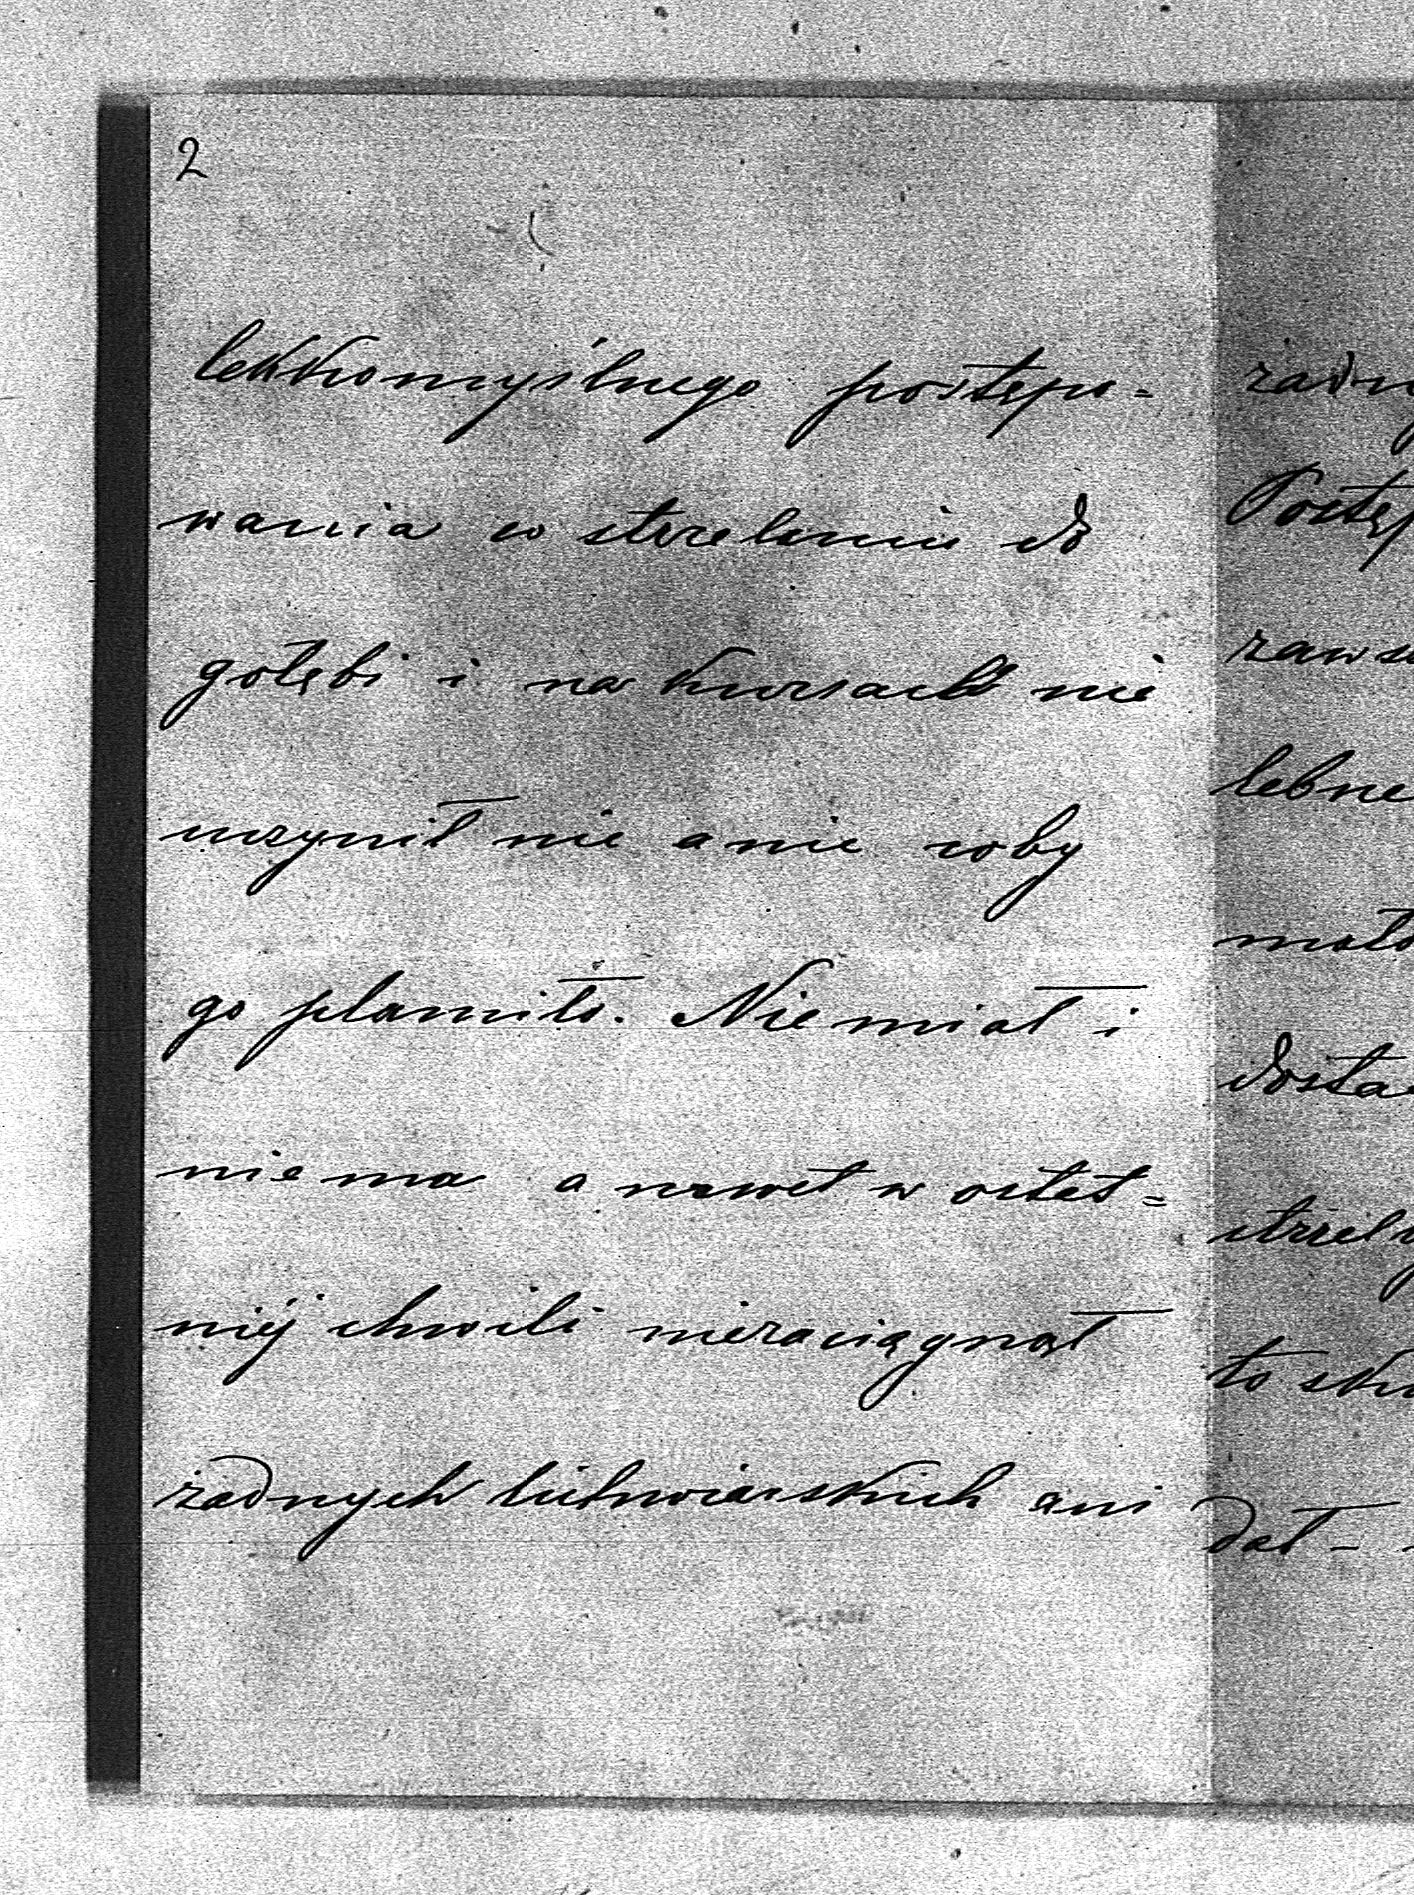 2
lekkomyślnego postępo=
wania w strzelaniu do
gołębi i na kursach nie
uczynił nic a nic coby
go plamiło. Nie miał i
nie ma a nawet w ostat=
niéj chwili niezaciągnął
żadnych lichwiarskich ani
żadny
Postęp
zawsz
lebne
mało
dosta
strzel
to sku
dał –